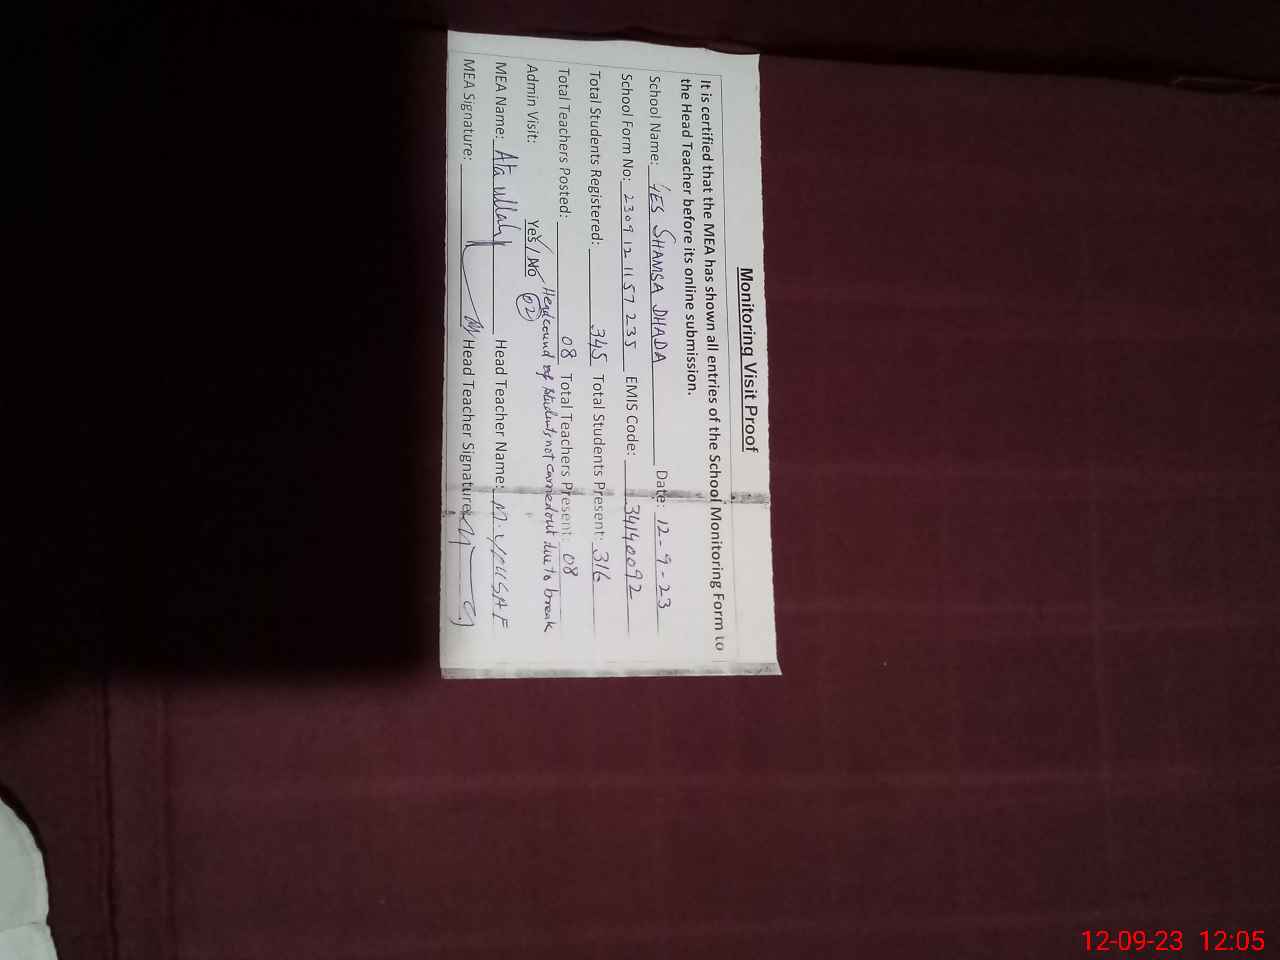 Monitoring Visit Proof
It is certified that the MEA has shown all entries of the School Monitoring Form to
the Head Teacher before its online submission.
School Name: GES SHAMSA DHADA Date: 12-9-23
School Form No: 2309121157235 EMIS Code: 34140092
Total Students Registered: 345 Total Students Present: 316
Total Teachers Posted: 08 Total Teachers Present: 08
Headcound of students not carried out due to break
Admin Visit: Yes / No 02
MEA Name: Ata ullah Head Teacher Name: M. YOUSAF
MEA Signature: Head Teacher Signature:
12-09-23 12:05